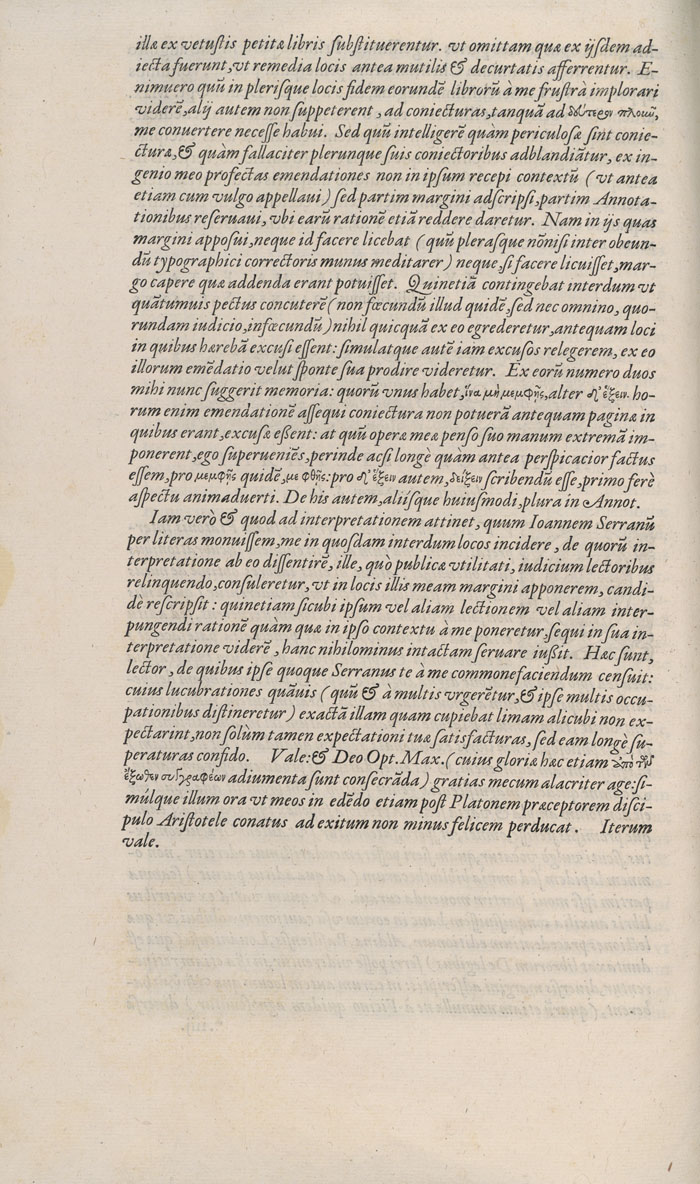 illæ ex vetustis petitæ libris substituerentur. vt omittam quæ ex ijsdem ad-
iecta fuerunt, vt remedia locis antea mutilis & decurtatis afferrentur. E-
nimuero quũ in plerisque locis fidem eorundẽ librorũ à me frustrà implorari
viderẽ, alij autem non suppeterent, ad coniecturas, tanquã ad δούτερον πλοιῶ,
me conuertere necesse habui. Sed quũ intelligerẽ quàm periculosæ sint conie-
cturæ, & quàm fallaciter plerunque suis coniectoribus adblandiãtur, ex in-
genio meo profectas emendationes non in ipsum recepi contextũ (vt antea
etiam cum vulgo appellaui) sed partim margini adscripsi, partim Annota-
tionibus reseruaui, vbi earũ rationẽ etiã reddere daretur. Nam in ijs quas
margini apposui, neque id facere licebat (quũ plerasque nõnisi inter obeun-
dũ typographici correctoris munus meditarer) neque, si facere licuisset, mar-
go capere quæ addenda erant potuisset. Quinetiã contingebat interdum vt
quãtumuis pectus concuterẽ (non fœcundũ illud quidẽ, sed nec omnino, quo-
rundam iudicio, infœcundũ) nihil quicquã ex eo egrederetur, antequam loci
in quibus hærebã excusi essent: simulatque autẽ iam excusos relegerem, ex eo
illorum emẽdatio velut sponte sua prodire videretur. Ex eorũ numero duos
mihi nunc suggerit memoria: quorũ vnus habet, ἵνα μὴ μεμφῇς, alter δ' ἕξειν. ho-
rum enim emendationẽ assequi coniectura non potuerã antequam paginæ in
quibus erant, excusæ eßent: at quũ operæ meæ penso suo manum extremã im-
ponerent, ego superueniẽs, perinde acsi longè quàm antea perspicacior factus
essem, pro μεμφῇς quidẽ, με φθῇς: pro δ' ἕξειν autem, δείξειν scribendũ esse, primo ferè
aspectu animaduerti. De his autem, aliisque huiusmodi, plura in Annot.
Iam verò & quod ad interpretationem attinet, quum Ioannem Serranũ
per literas monuissem, me in quosdam interdum locos incidere, de quorũ in-
terpretatione ab eo dissentirẽ, ille, quò publicæ vtilitati, iudicium lectoribus
relinquendo, consuleretur, vt in locis illis meam margini apponerem, candi-
dè rescripsit: quinetiam sicubi ipsum vel aliam lectionem vel aliam inter-
pungendi rationẽ quàm quæ in ipso contextu à me poneretur, sequi in sua in-
terpretatione viderẽ, hanc nihilominus intactam seruare iußit. Hæc sunt,
lector, de quibus ipse quoque Serranus te à me commonefaciendum censuit:
cuius lucubrationes quãuis (quũ & à multis vrgerẽtur, & ipse multis occu-
pationibus distineretur) exactã illam quam cupiebat limam alicubi non ex-
pectarint, non solùm tamen expectationi tuæ satisfacturas, sed eam longè su-
peraturas confido. Vale: & Deo Opt. Max. (cuius gloriæ hæc etiam ὑπὸ τῶν
ἔξωθεν συγγραφέων adiumenta sunt consecrãda) gratias mecum alacriter age: si-
múlque illum ora vt meos in edẽdo etiam post Platonem præceptorem disci-
pulo Aristotele conatus ad exitum non minus felicem perducat. Iterum
vale.